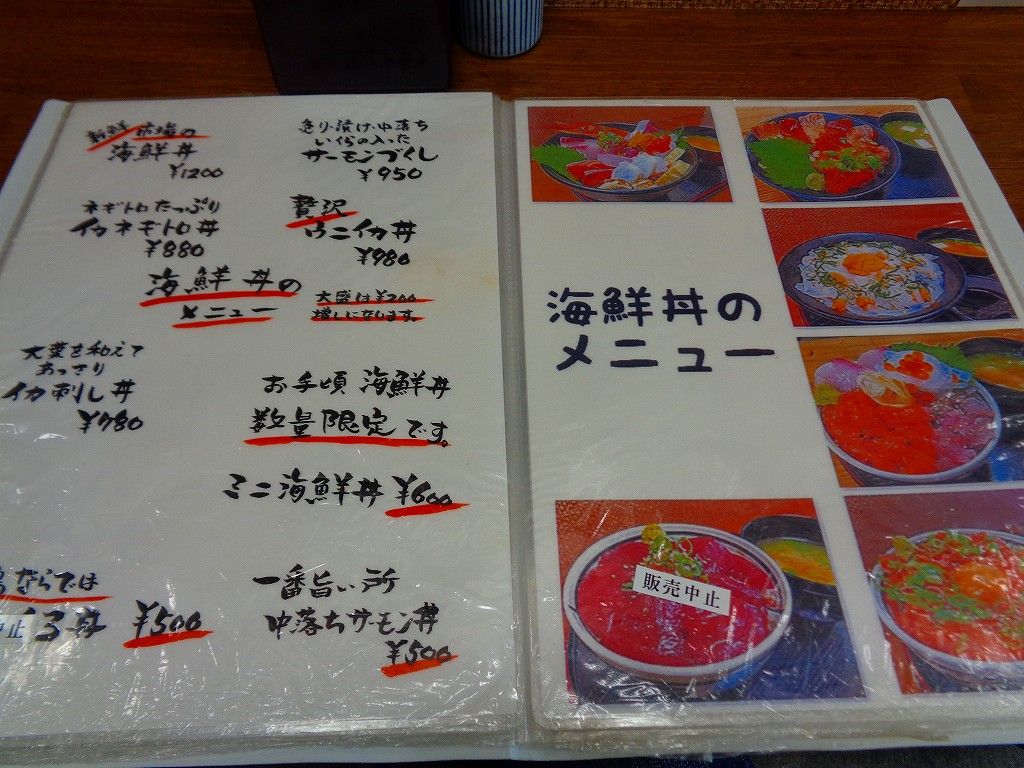 新鮮市場の
海鮮丼
¥1200
炙り・漬け・中落ち
いくらの入った
サーモンづくし
¥950
ネギトロたっぷり
イカネギトロ丼
¥880
贅沢
ウニイカ丼
¥980
海鮮丼の
メニュー
大盛は¥200
増しになります。
大葉を和えて
あっさり
イカ刺し丼
¥780
お手頃 海鮮丼
数量限定です。
ミニ海鮮丼 ¥600
ならでは
中止 る丼 ¥500
一番旨い所
中落ちサーモン丼
¥500
海鮮丼の
メニュー
販売中止